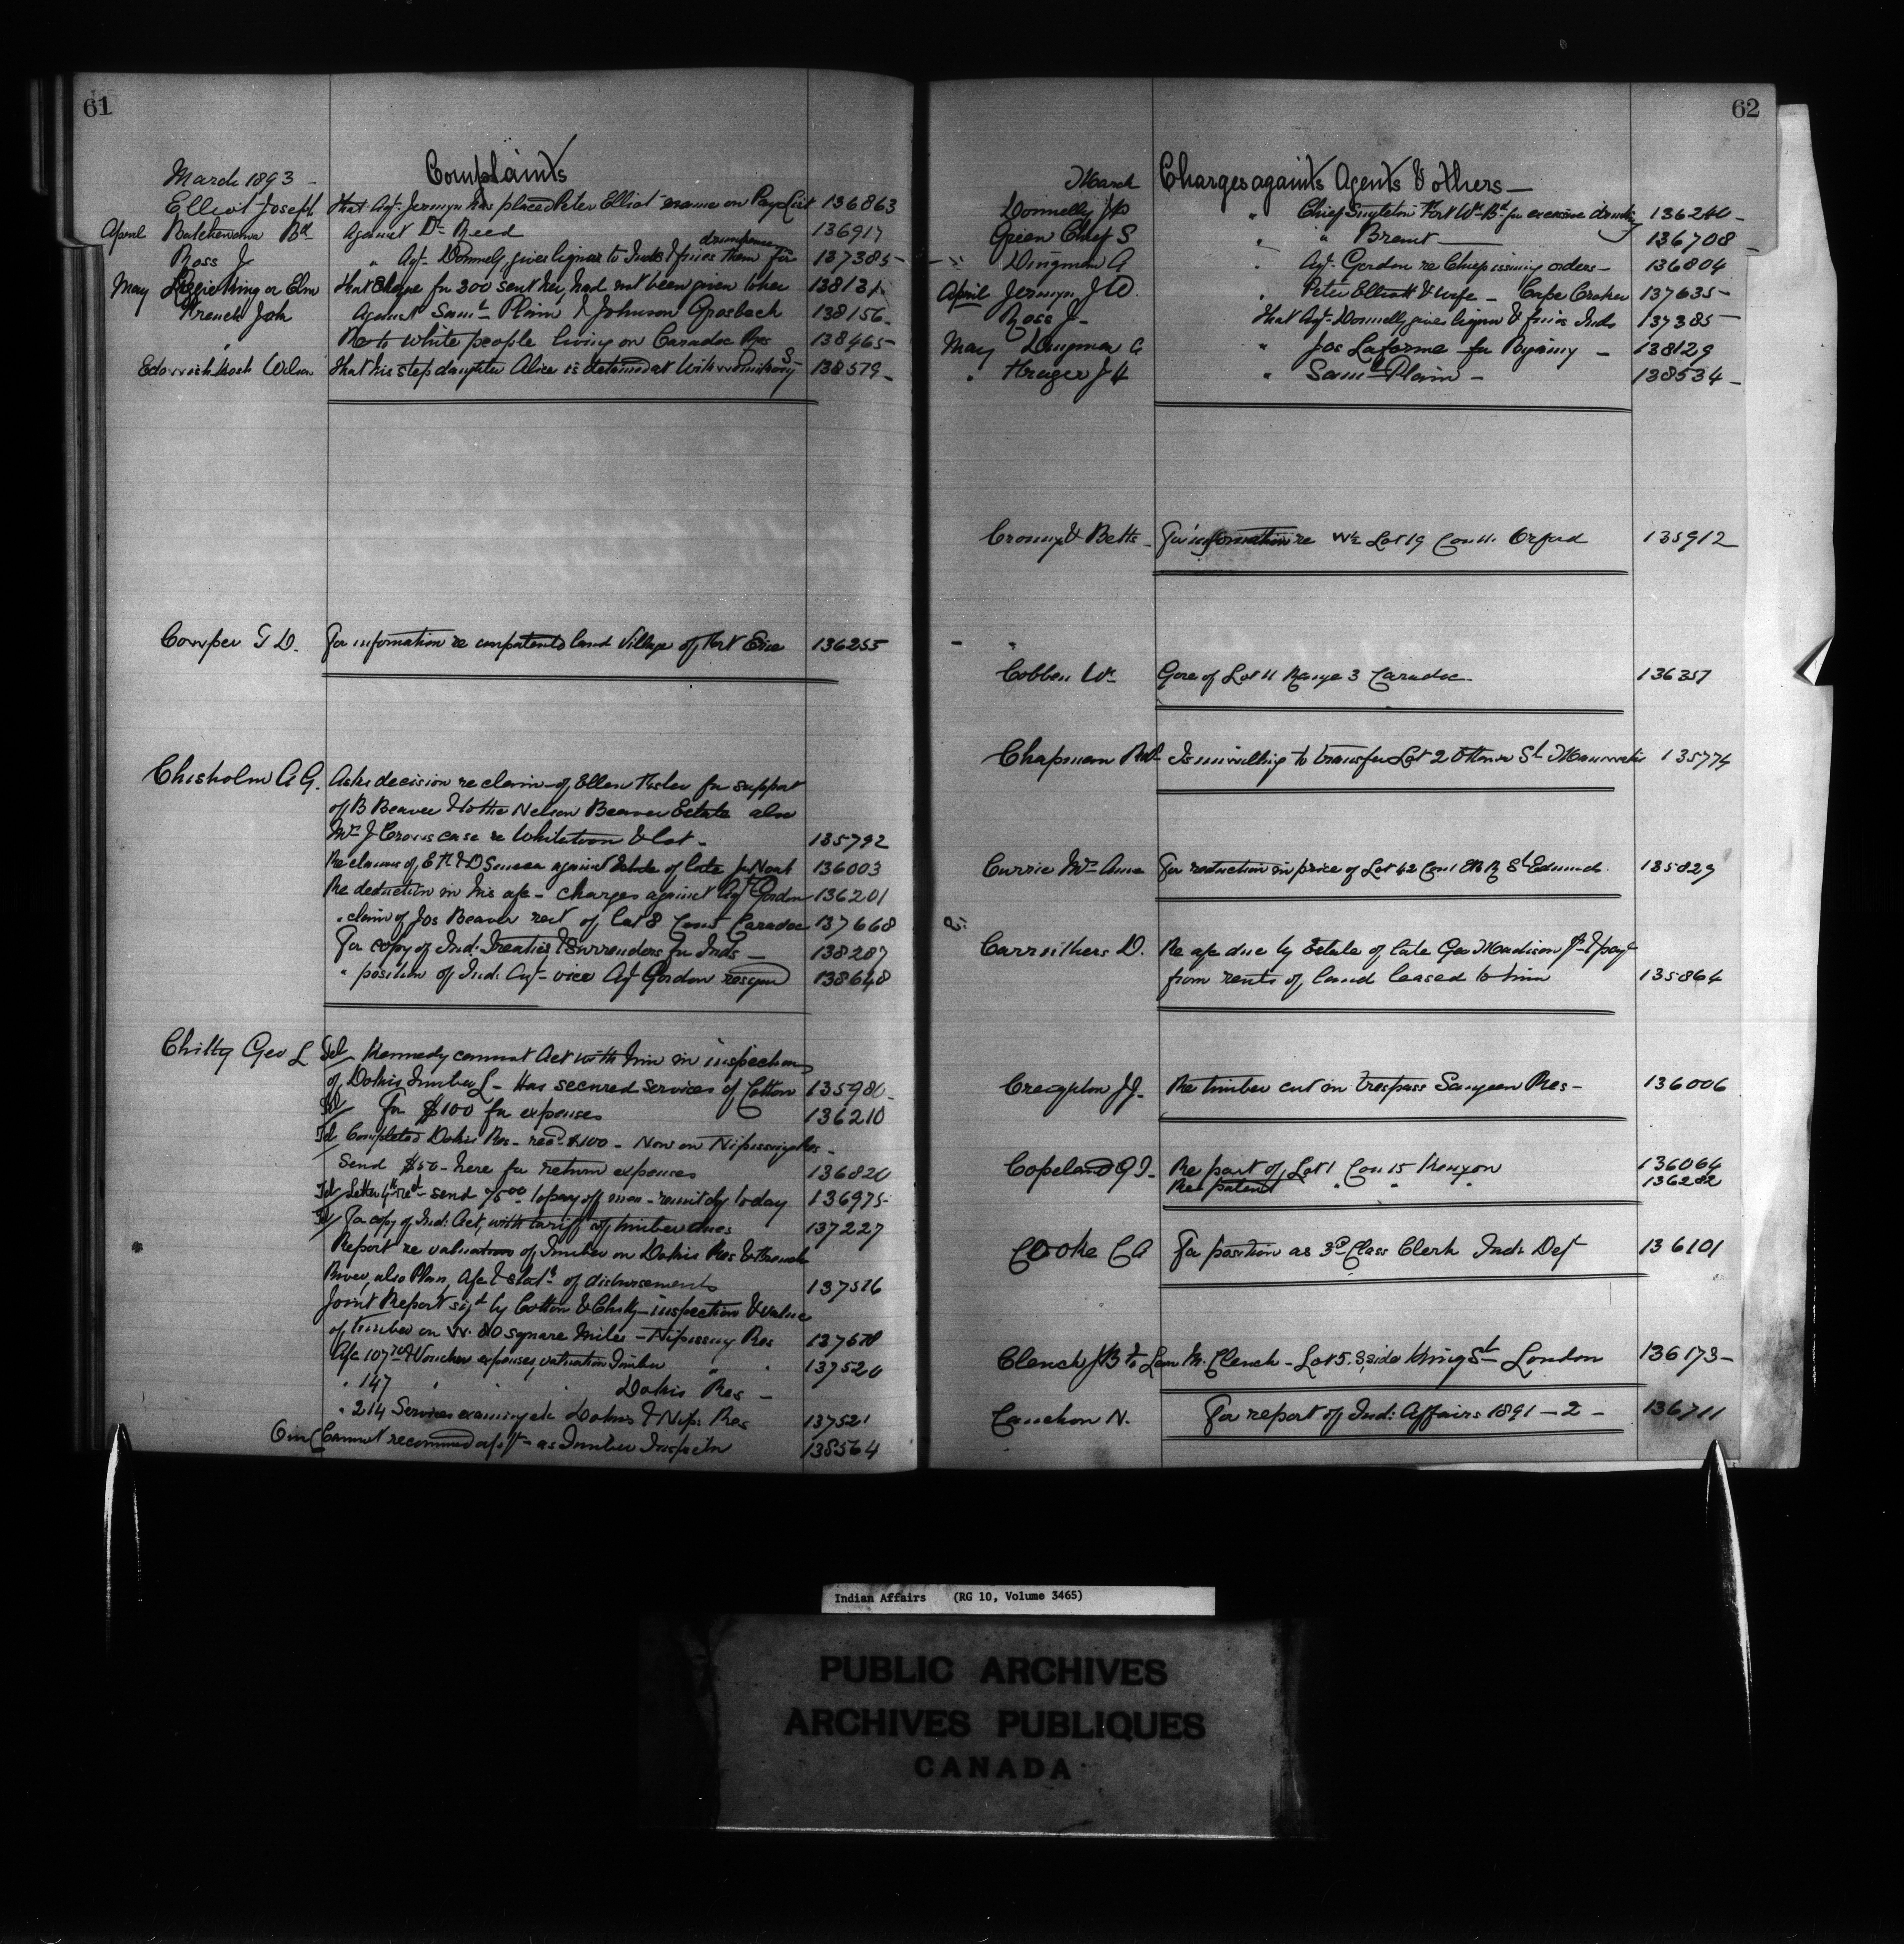 61
Complaints
March 1893 -
Elliot Joseph That Agt. Jermyn has placed Peter Elliot name on Pay List 136863
April Batchewana Bd. Against Dr. Reed 136917
drunkenness
Ross J " Agt. Donnelly gives liquor to Inds & fines them for 137385 -
May King or Elm That for 300 sent hey had not been given to her 13813
French Joh Against Saml. Plain & Johnson Grosbeck 138156
" Re to white people living on Caradoc Res 138465 -
Wilson That his step daughter Alice is detained at 138579 -
Cowper T D. For information re unpatented land Village of Fort Erie 136255
Chisholm A G. Asks decision re claim of Ellen Fisher for support
of B Beaver & to the Nelson Beaver Estate also
Mrs J Crows case re Whiteloon & lot - 135792
Re claims of E H & D Seneca against Estate of late Jno Noah 136003
Re deduction in his a/c - charges against Agt Gordon 136201
" claim of Jos Beaver rent of Lot 8 Con Caradoc 137668
For copy of Ind: Treaties & Surrenders for Inds - 138287
" position of Ind: Agt - vice Agt Gordon resign 138648
Chitty Geo L Tel Kennedy cannot Act with him in inspection
of Dokis Timber L - Has secured services of Cotton 135980 -
Tel For $100 for expenses 136210
Tel Completed Dokis Res - recd. $100 - Now on Nipissing Res -
Send $50 - here for return expenses 136820
Tel Letter 4th recd - send 75.00 to pay off men - remit by today 136975
Tel For copy of Ind: Act, with tariff of timber dues 137227
Report re valuation of Timber on Dokis Res & French
River, also Plan, A/c & of disbursements 137516
Joint Report sigd by Cotton & Chitty - inspection & value
of timber on N. 80 square Miles - Nipissing Res 137678
A/c 107 & Voucher expenses, valuation Timber " " 137520
" 147 " " " Dokis Res -
" 214 Services examining etc Dokis & Nip: Res 137521
Cannot recommend as Timber Inspector 138564
62
March Charges against Agents & others -
Donnelly J P " Chief Singleton Fort Wm. Bd. for excessive drinking 136240 -
Green Chief S " " Brant 136708 -
Dingman A " Agt. Gordon re Chief issuing orders - 136804
April Jermyn J W " Peter Elliott & wife - Cape Croker 137635 -
Ross J - That Agt. Donnelly gives liquor & fines Inds 137385 -
May Dingman A " Jos Laforme for Bigamy - 138129
" Kruger J H " Saml. Plain - 138534 -
Cronyn & Betts - For information re W½ Lot 19 Con 11. Orford 135912
Cobben Wm Gore of Lot 11 Range 3 Caradoc 136357
Chapman Is unwilling to transfer Lot 2 Ottawa St 135774
Currie Mrs Anne For reduction in price of Lot 42 Con 1 E B R St Edmunds 135829
Carruthers D. Re a/c due by Estate of late Geo Madison Jr & payt
from rents of land leased to him 135864
Creighton J J. Re timber cut on trespass Saugeen Res - 136006
Copeland G J - Re part of Lot 1 Con 15 Kenyon 136064
Re patent " " " 136282
Cooke C A For position as 3rd Class Clerk Ind: Det 136101
Clench J B to M. Clench - Lot 5. S side King St London 136173 -
Cauchon N. For report of Ind: Affairs 1891 - 2 - 136711
Indian Affairs (RG 10, Volume 3465)
PUBLIC ARCHIVES
ARCHIVES PUBLIQUES
CANADA